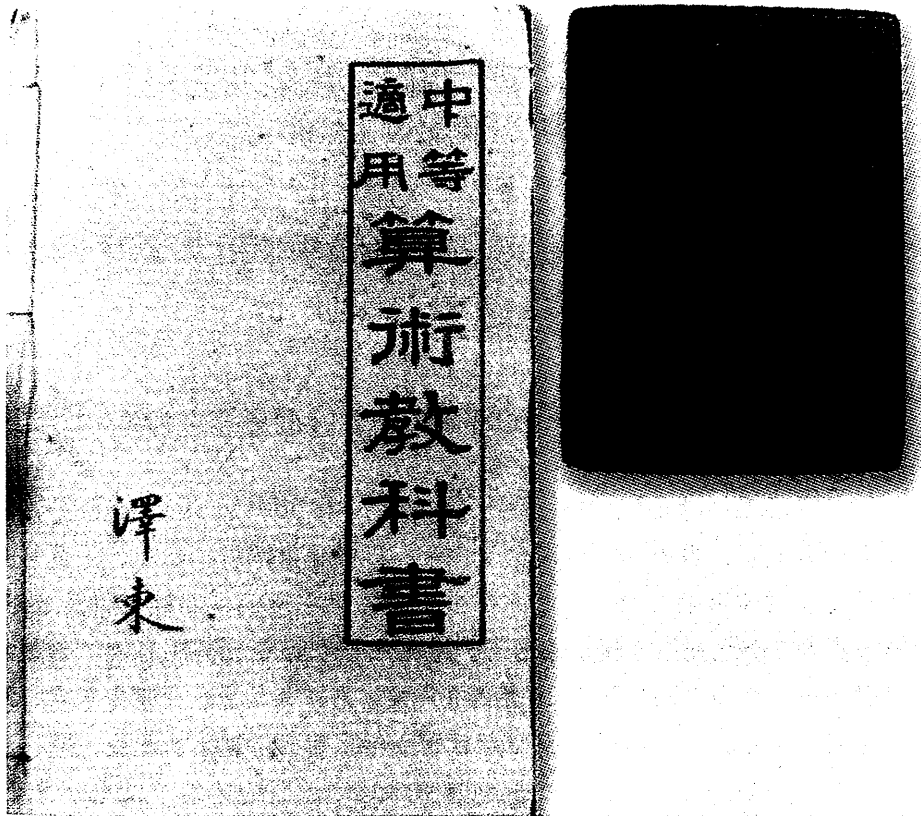 中等
適用
算術教科書
澤東